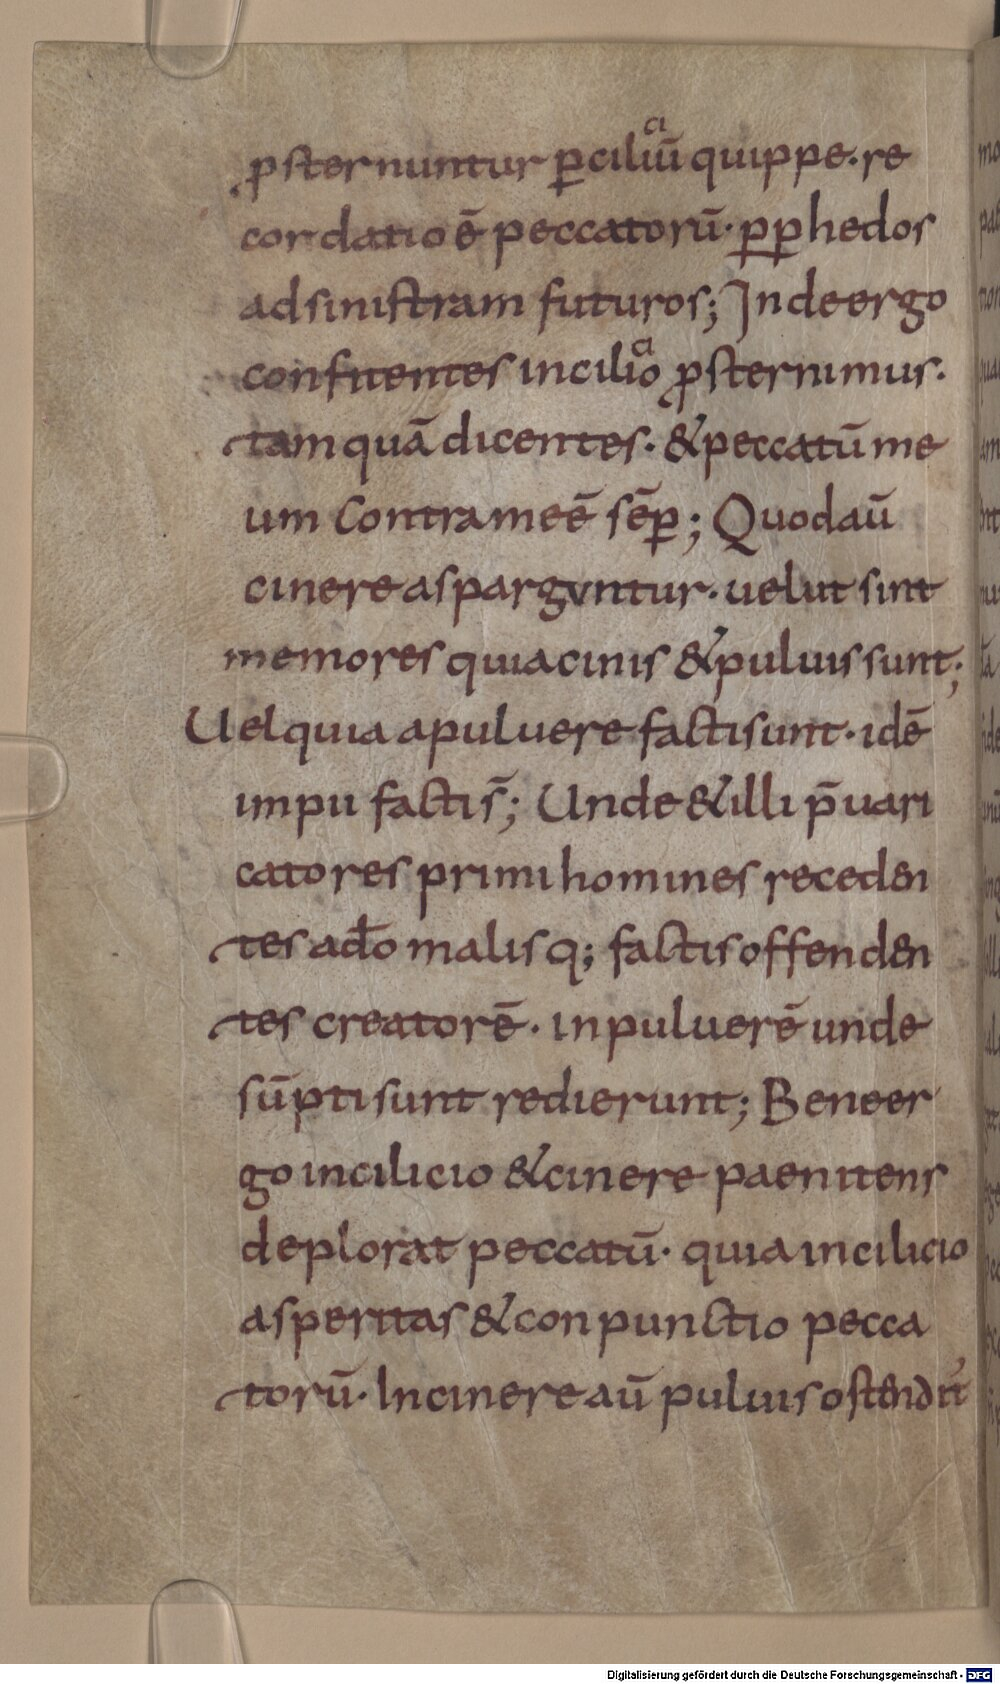 ꝓsternuntur ꝑciliciū quippe· re
cordatio ē peccatorū· ꝑꝑ hedos
ad sinistram futuros; Inde ergo
confitentes in cilicio ꝓsternimus·
tam quā dicentes· & peccatū me
um Contra me ē sēꝑ; Quod aū
cinere asparguntur· uelut sint
memores quia cinis & puluis sunt;
Uel quia a puluere facti sunt· idē
impii facti s̄; Unde & illi p̄uari
catores primi homines receden
tes a do malisq; factis offenden
tes creatorē· in puluerē unde
sūpti sunt redierunt; Bene er
go in cilicio & cinere paenitens
deplorat peccatū· quia in cilicio
asperitas & conpunctio pecca
torū· In cinere aū puluis ostendit᷑
Digitalisierung gefördert durch die Deutsche Forschungsgemeinschaft - DFG